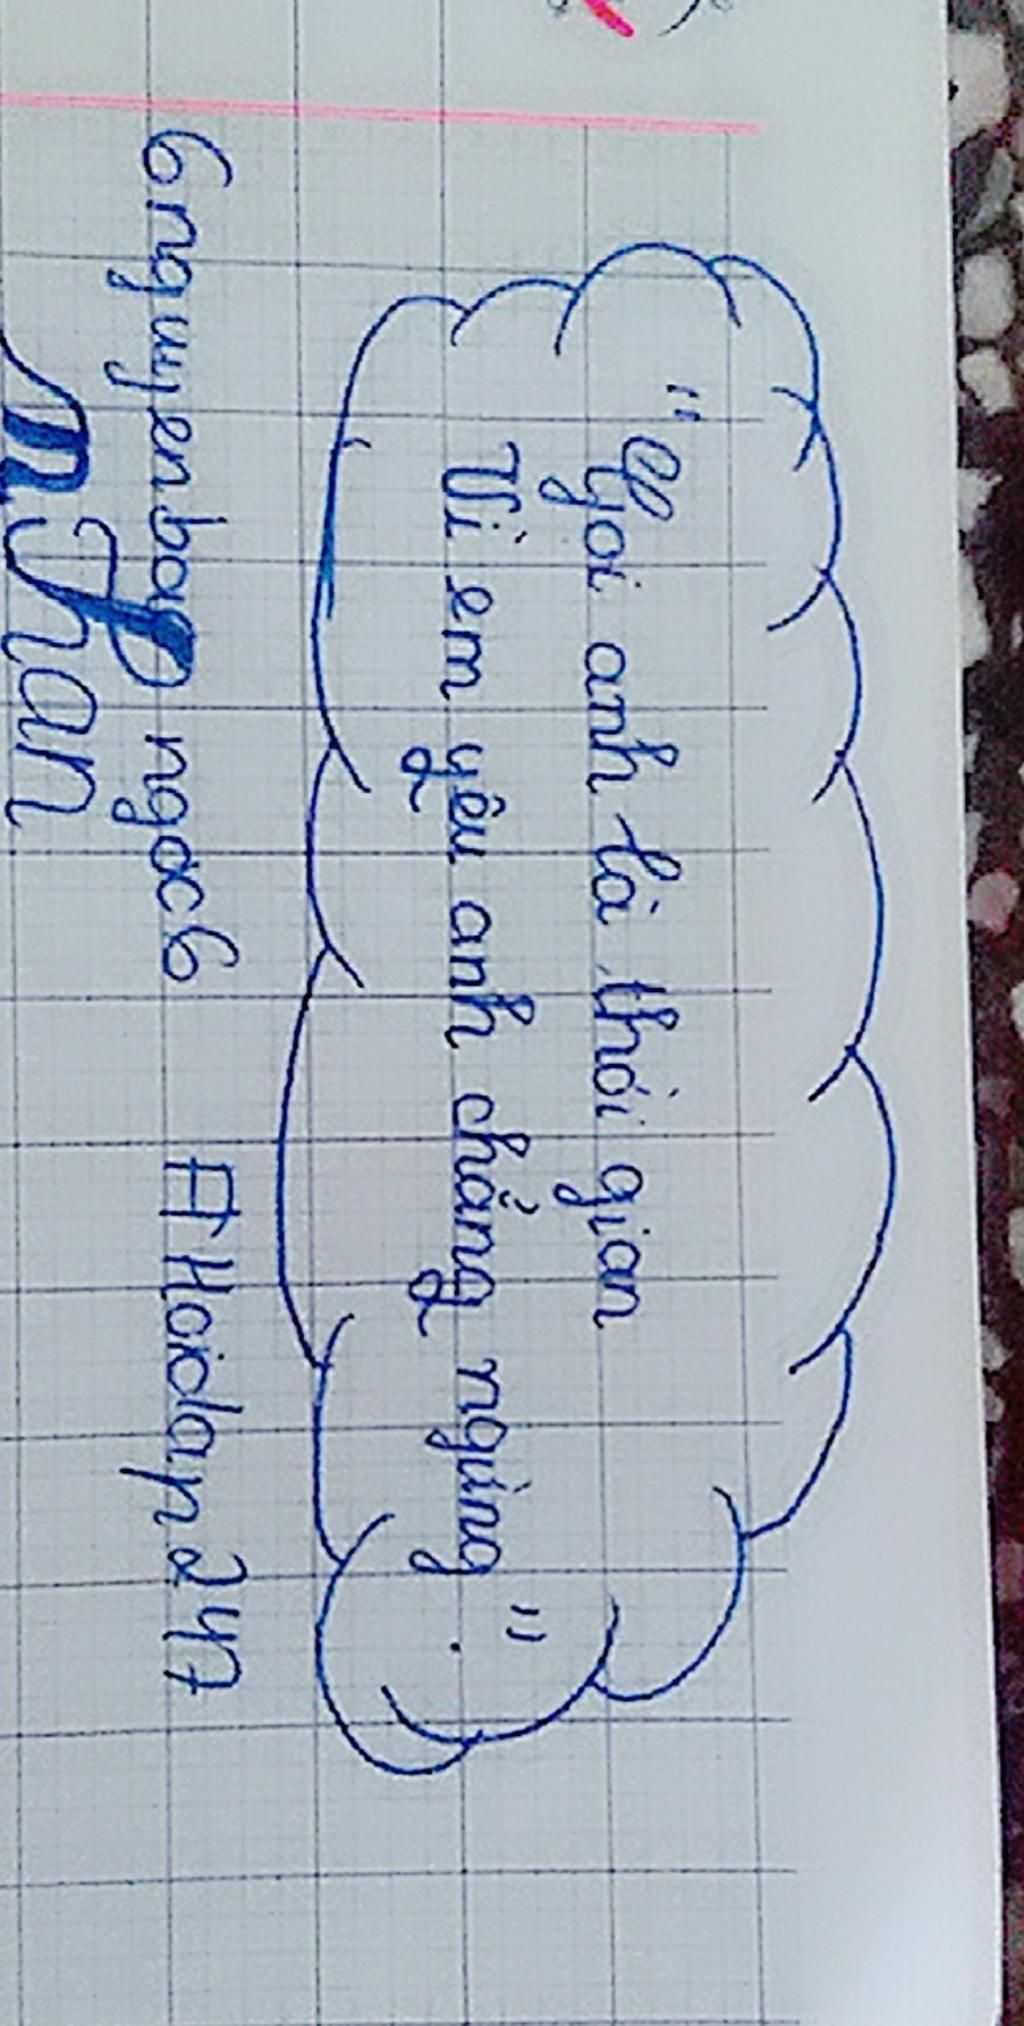 "Gọi anh là thời gian
Vì em yêu anh chẳng ngừng".
6nguyenbao ngoc6 #Hoidap247
nhan